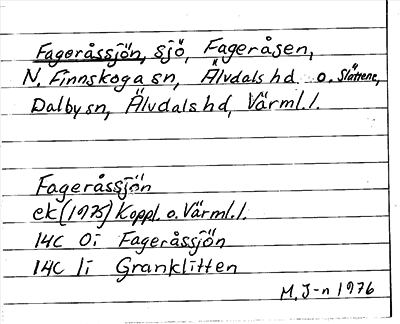 Fageråssjön, sjö, Fageråsen,
N. Finnskoga sn, Älvdals hd o. Slättene,
Dalby sn, Älvdals hd, Värml. l.
Fageråssjön
ek (1975) Koppl. o. Värml. l.
14C 0i Fageråssjön
14C 1i Granklitten
M. J-n 1976